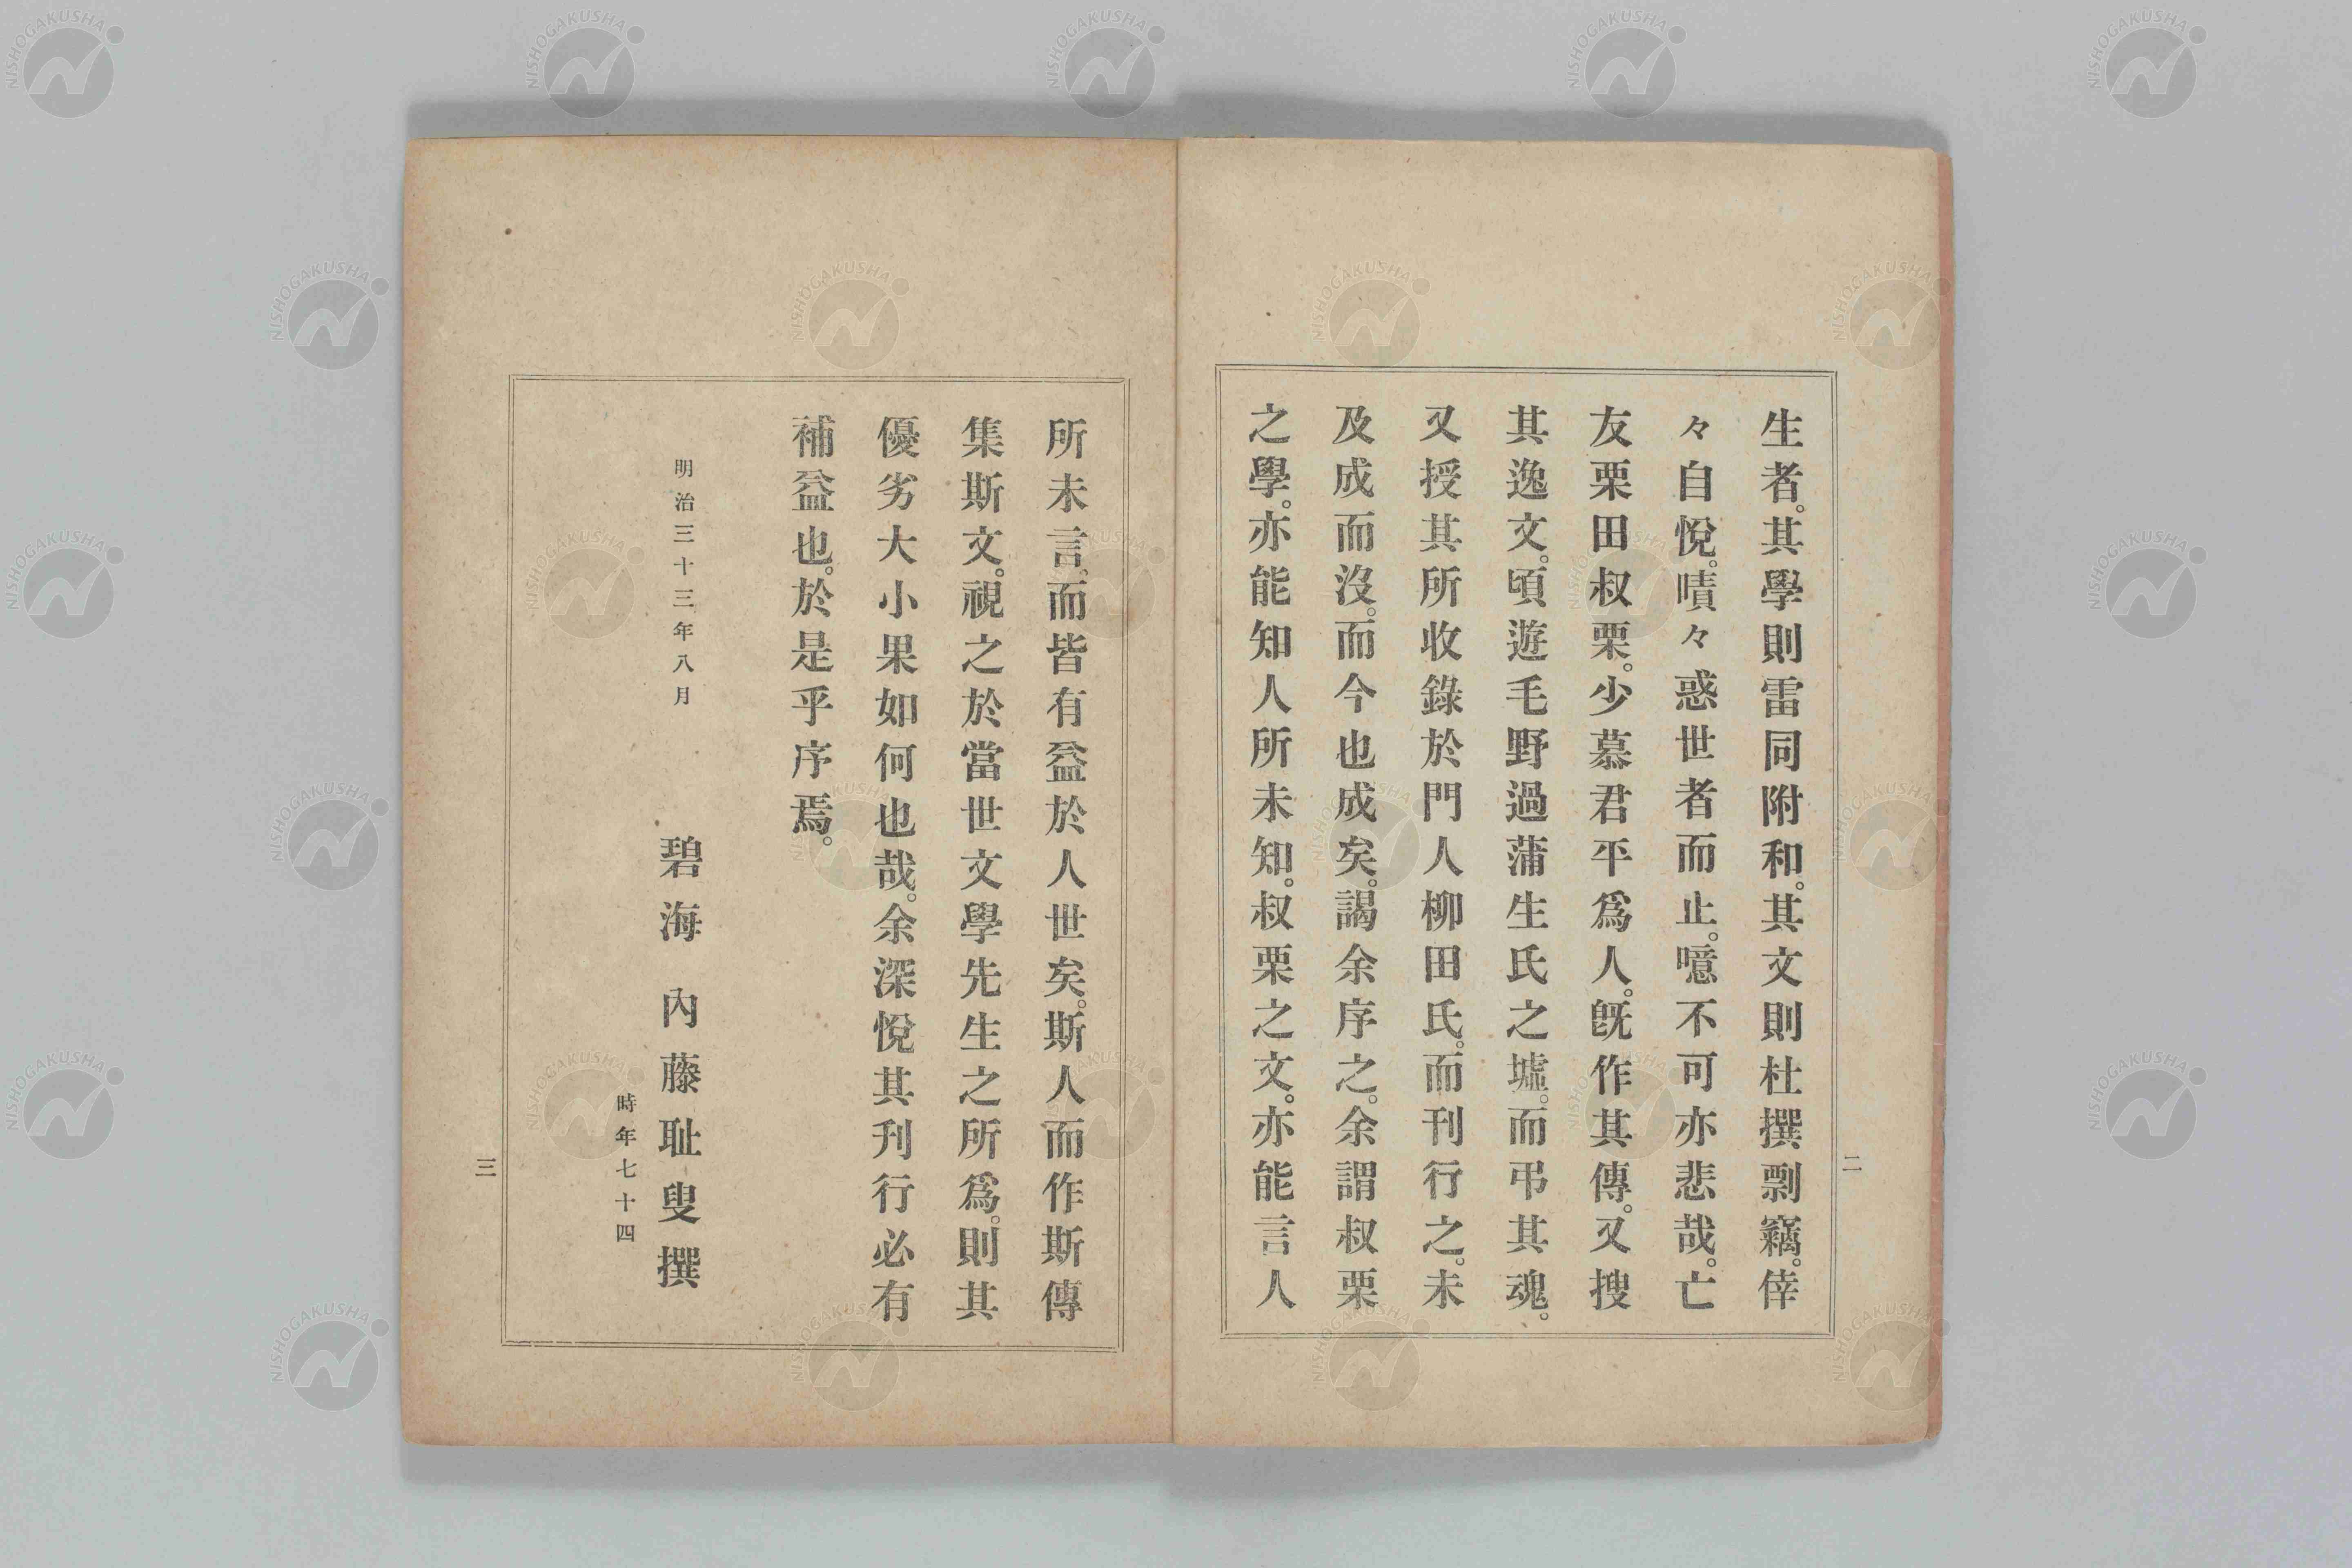 生者。其學則雷同附和。其文則杜撰剽竊。倖
々自悅。嘖々惑世者而止。噫不可亦悲哉。亡
友栗田叔栗。少慕君平爲人。旣作其傳。又搜
其逸文。頃遊毛野過蒲生氏之墟。而弔其魂。
又授其所收錄於門人柳田氏。而刊行之。未
及成而沒。而今也成矣。謁余序之。余謂叔栗
之學。亦能知人所未知。叔栗之文。亦能言人
二
所未言。而皆有益於人世矣。斯人而作斯傳
集斯文。視之於當世文學先生之所爲。則其
優劣大小果如何也哉。余深悅其刋行必有
補益也。於是乎序焉。
明治三十三年八月
碧海 內藤耻叟撰
時年七十四
三
NISHOGAKUSHA